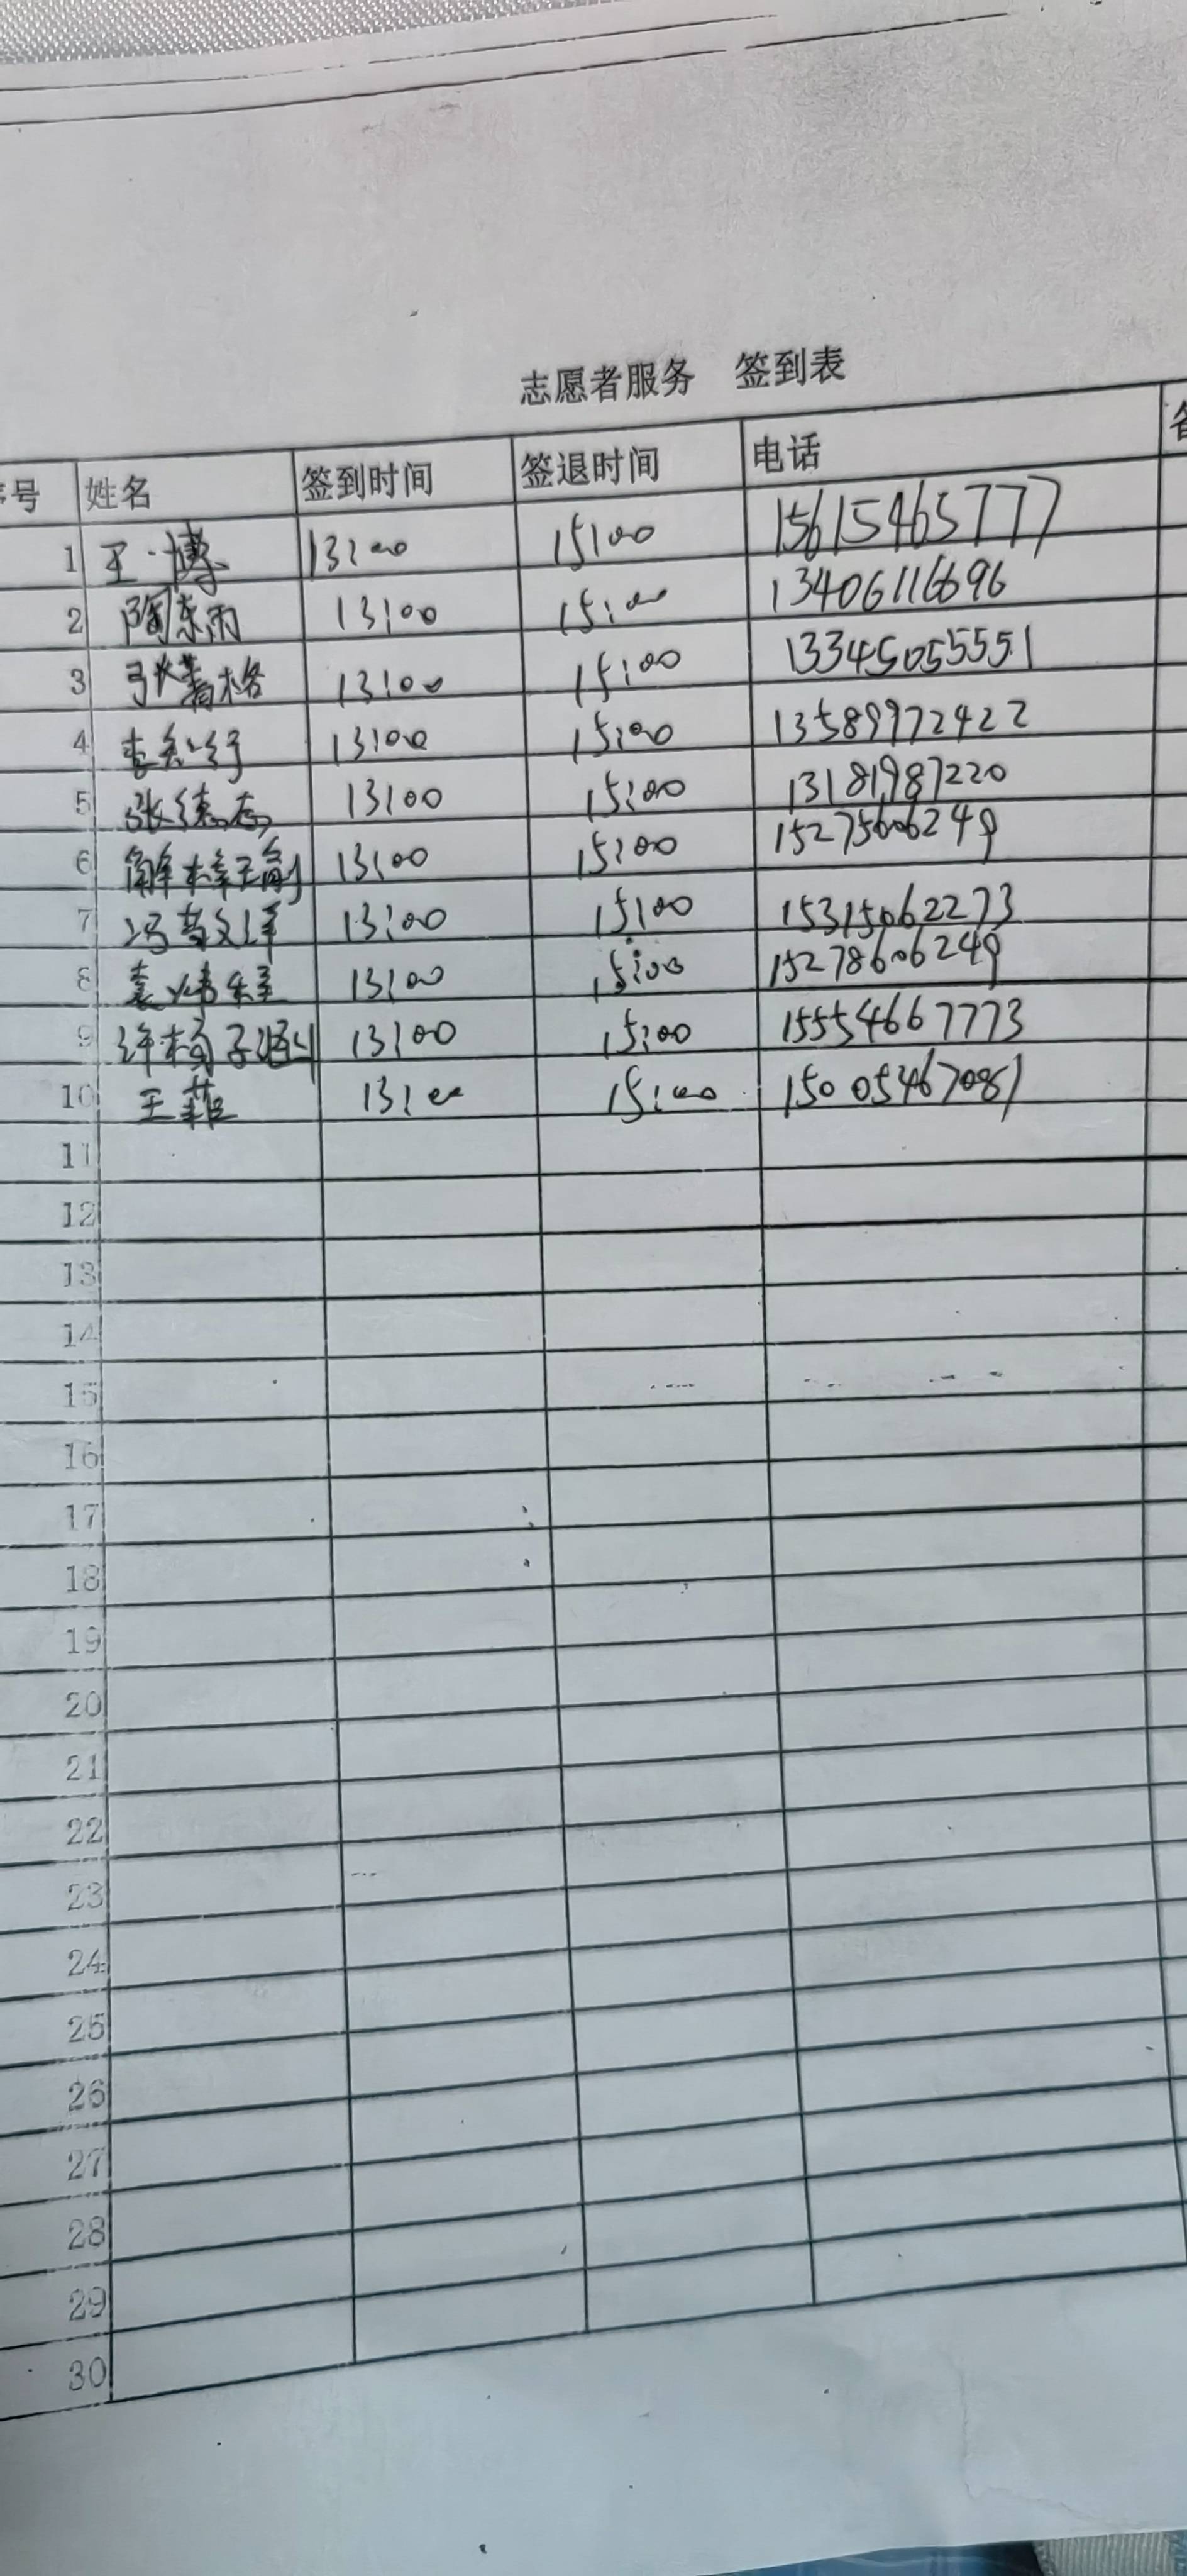 志愿者服务 签到表
号 姓名 签到时间 签退时间 电话
1 王博 13:00 15:00 15615465777
2 陶东雨 13:00 15:00 13406116696
3 张 格 13:00 15:00 13345055551
4 13:00 15:00 13589972422
5 张德志 13:00 15:00 13181987220
6 13:00 15:00 15275606249
7 冯 13:00 15:00 15315062273
8 袁 13:00 15:00 15278606249
9 许 子 13:00 15:00 15554667773
10 王菲 13:00 15:00 15005467081
11
12
13
14
15
16
17
18
19
20
21
22
23
24
25
26
27
28
29
30